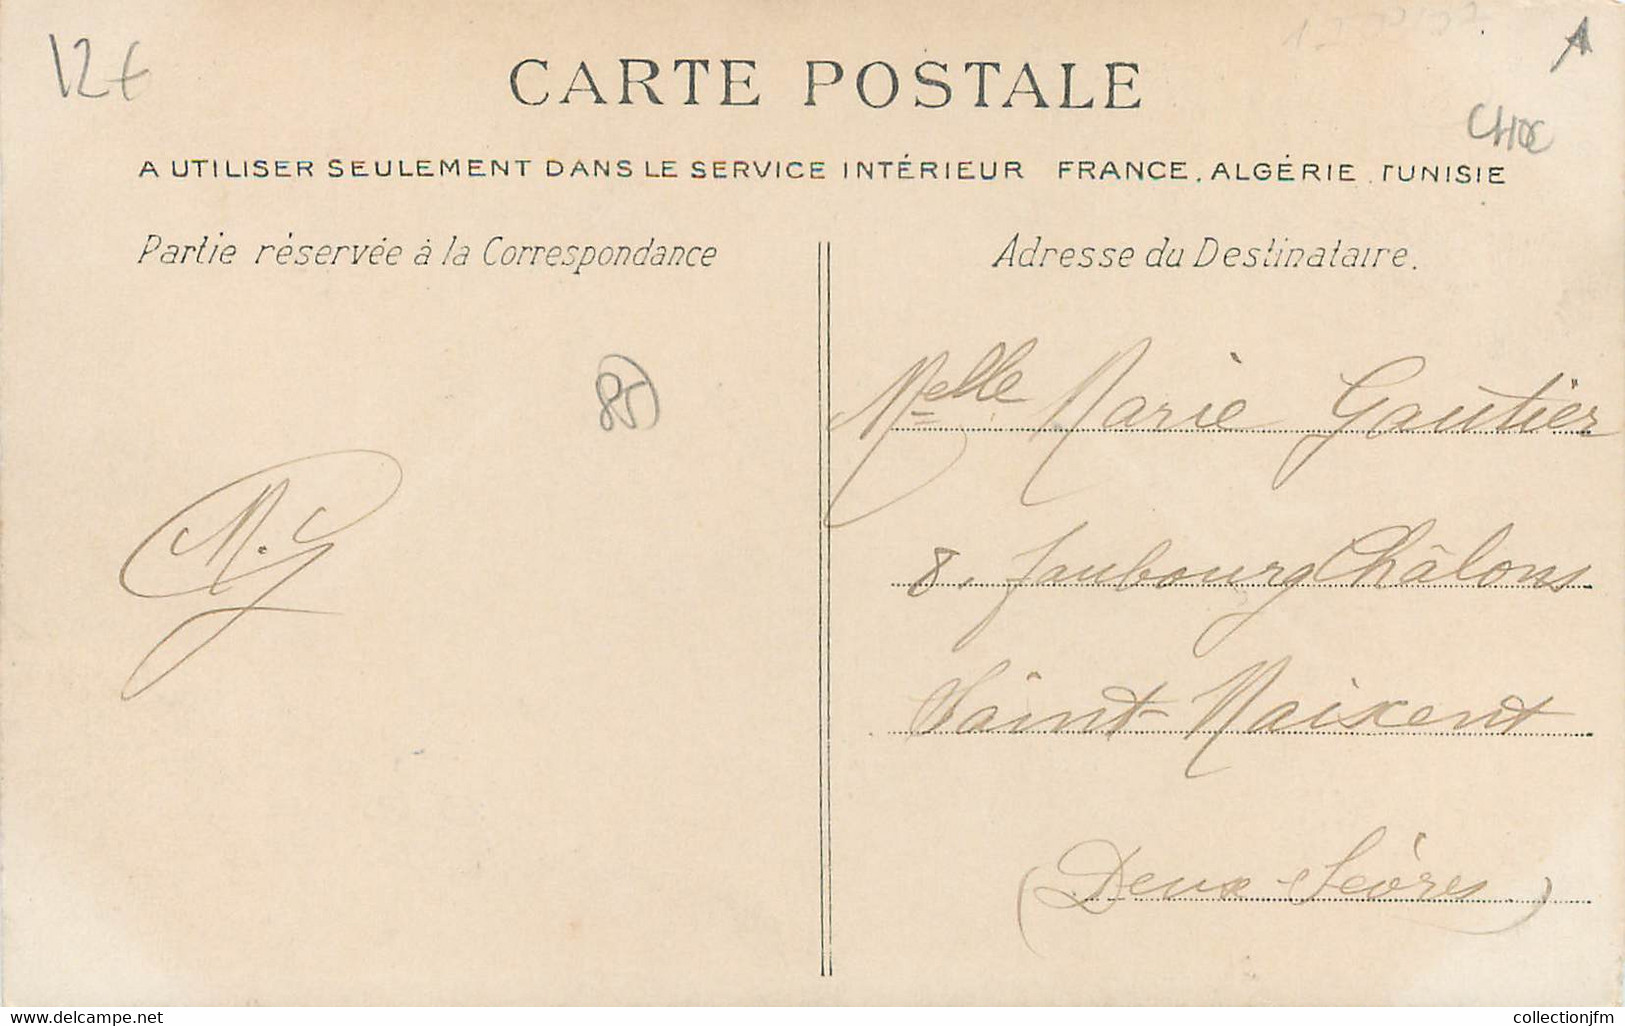 12€
A
CARTE POSTALE
CHOC
A UTILISER SEULEMENT DANS LE SERVICE INTÉRIEUR FRANCE, ALGÉRIE, TUNISIE
Partie réservée à la Correspondance
Adresse du Destinataire.
85
Melle Marie Gautier
M. G
8, faubourg Châlons
Saint-Maixent
(Deux-Sèvres)
www.delcampe.net
collectionjfm